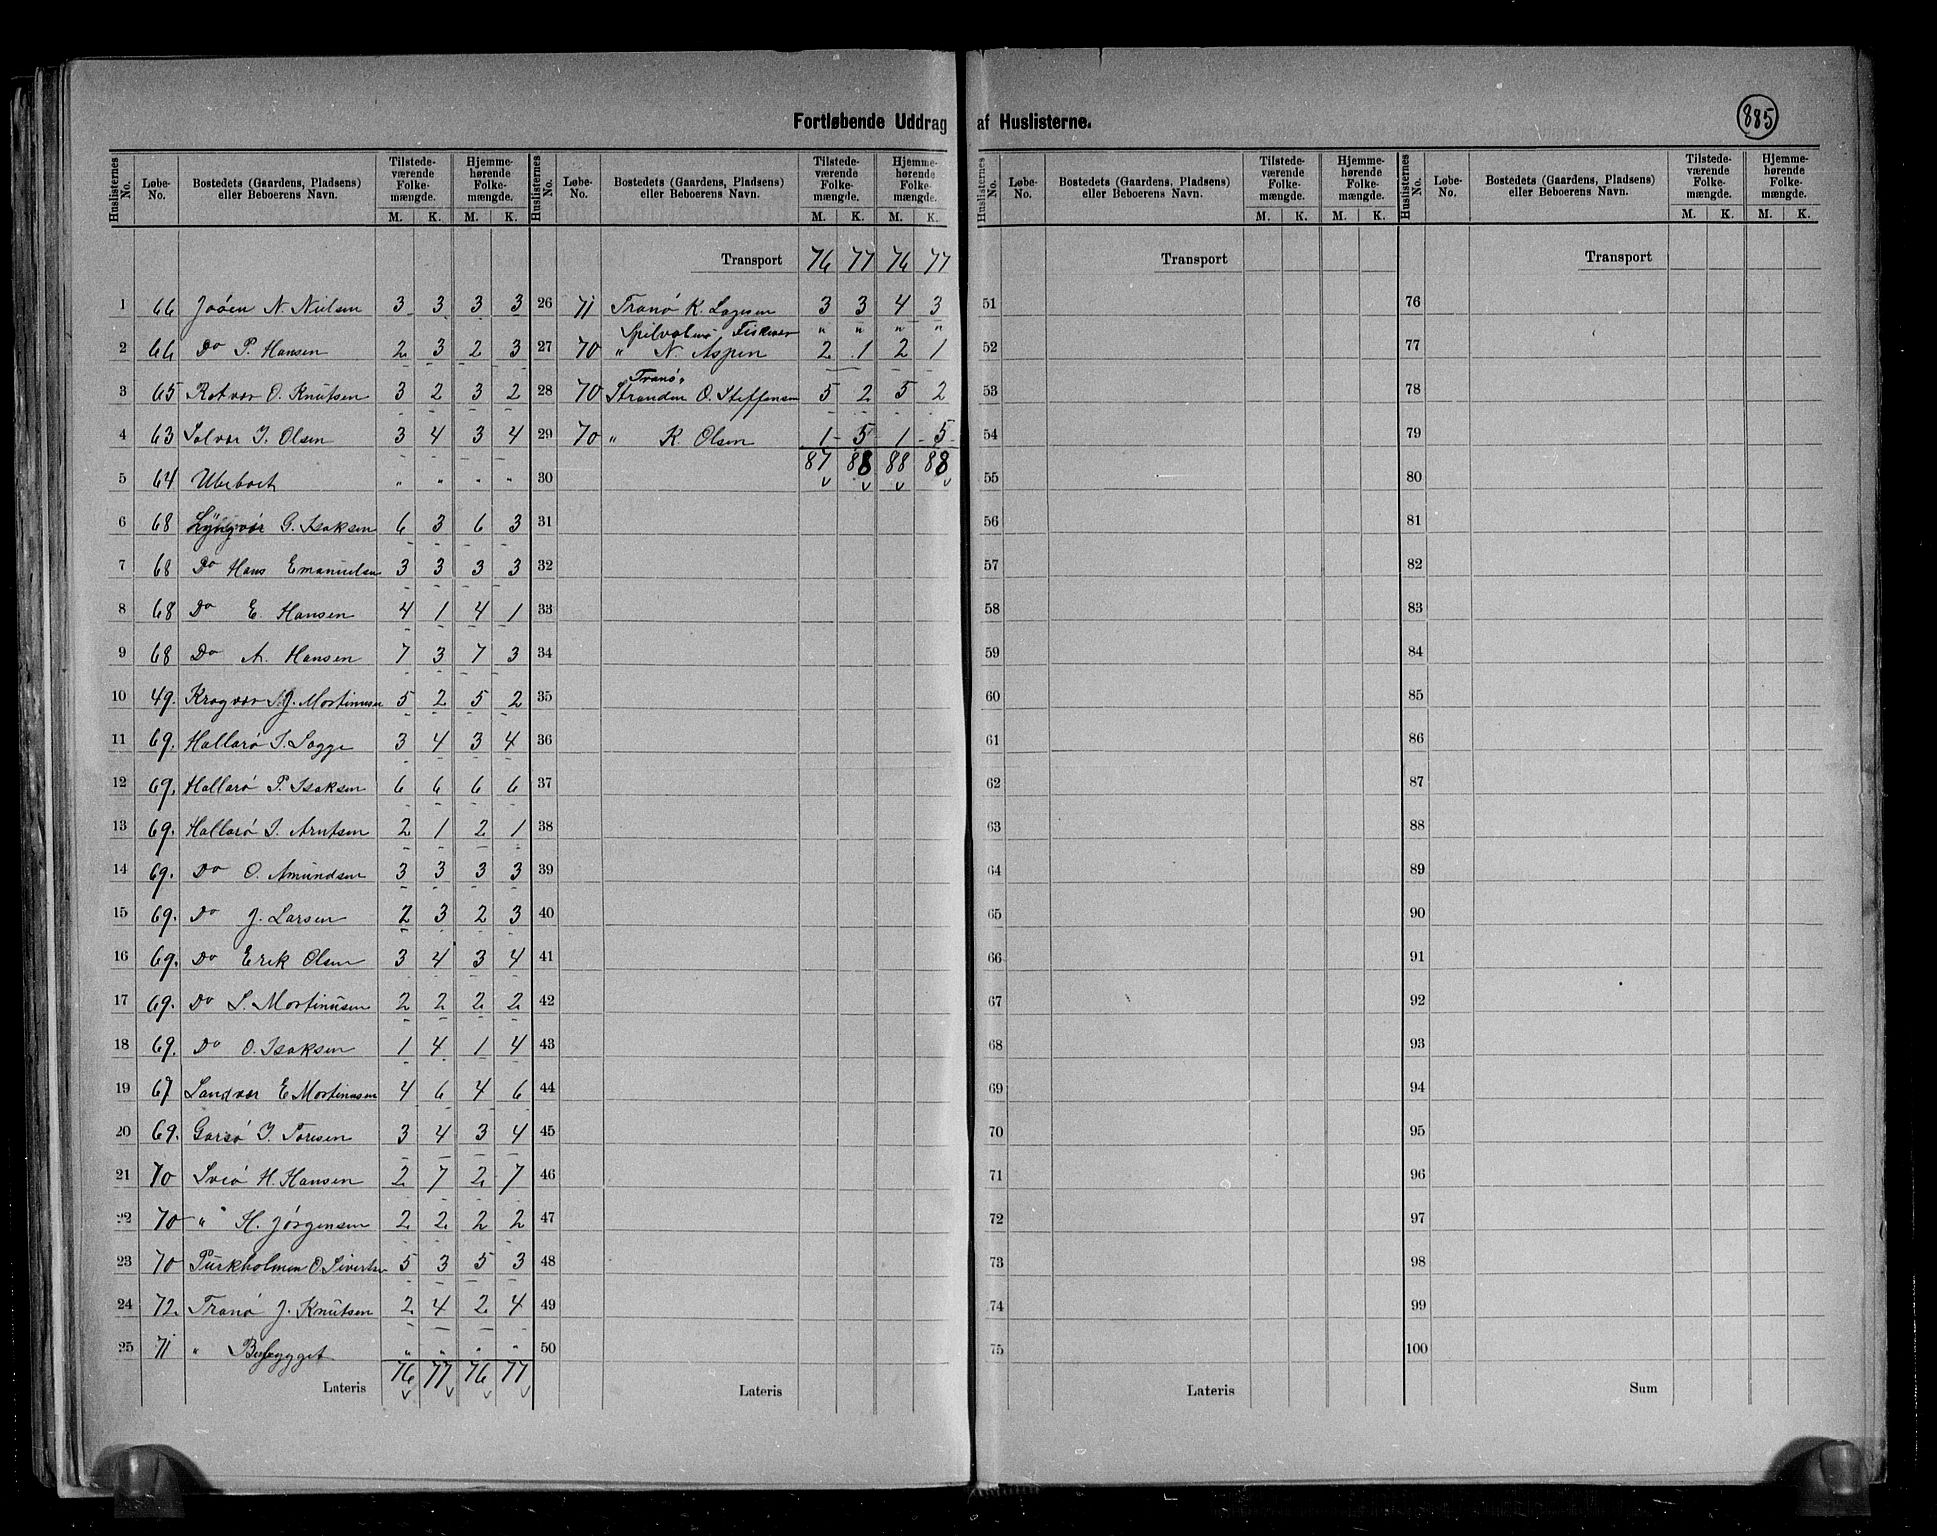 Fortløbende Uddrag af Huslisterne.
885
Huslisternes No. Løbe-No. Bostedets (Gaardens, Pladsens) eller Beboerens Navn. Tilstedeværende Folkemængde. M. K. Hjemmehørende Folkemængde. M. K.
1 66 N. Nielsen 3 3 3 3
2 66 Do P. Hansen 2 3 2 3
3 65 Rotvær O. Knutsen 3 2 3 2
4 63 Solvær J. Olsen 3 4 3 4
5 64 Ubeboet " " " "
6 68 Lyngvær G. Isaksen 6 3 6 3
7 68 Do Hans Emanuelsen 3 3 3 3
8 68 Do E. Hansen 4 1 4 1
9 68 Do A. Hansen 7 3 7 3
10 49. Kragvær J. Mortinusen 5 2 5 2
11 69. Hallarø J. Sagge 3 4 3 4
12 69. Hallarø P. Isaksen 6 6 6 6
13 69. Hallarø J. Arntsen 2 1 2 1
14 69. Do O. Amundsen 3 3 3 3
15 69. Do J. Larsen 2 3 2 3
16 69. Do Erik Olsen 3 4 3 4
17 69. Do S. Mortinusen 2 2 2 2
18 69. Do O. Isaksen 1 4 1 4
19 67 Sandvær E Mortinusen 4 6 4 6
20 69. Garsø J. Toresen 3 4 3 4
21 70 Sviø H. Hansen 2 7 2 7
22 70 " H. Jørgensen 2 2 2 2
23 70 Purkholmen O. Sivertsen 5 3 5 3
24 72. Tranø J. Knutsen 2 4 2 4
25 71 " " " " "
Lateris 76 77 76 77
Huslisternes No. Løbe-No. Bostedets (Gaardens, Pladsens) eller Beboerens Navn. Tilstedeværende Folkemængde. M. K. Hjemmehørende Folkemængde. M. K.
Transport 76 77 76 77
26 71 Tranø K. 3 3 4 3
" " " "
27 70 " N. Aspen 2 1 2 1
Tranø,
28 70 Stranden O. Steffensen 5 2 5 2
29 70 " K. Olsen 1 5 1 5
30 87 88 88 88
31
32
33
34
35
36
37
38
39
40
41
42
43
44
45
46
47
48
49
50
Lateris
Huslisternes No. Løbe-No. Bostedets (Gaardens, Pladsens) eller Beboerens Navn. Tilstedeværende Folkemængde. M. K. Hjemmehørende Folkemængde. M. K.
Transport
51
52
53
54
55
56
57
58
59
60
61
62
63
64
65
66
67
68
69
70
71
72
73
74
75
Lateris
Huslisternes No. Løbe-No. Bostedets (Gaardens, Pladsens) eller Beboerens Navn. Tilstedeværende Folkemængde. M. K. Hjemmehørende Folkemængde. M. K.
Transport
76
77
78
79
80
81
82
83
84
85
86
87
88
89
90
91
92
93
94
95
96
97
98
99
100
Sum